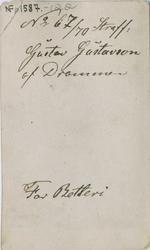 No 1587.
No 67/70 Straff:
Gustav Gustavson
af Drammen
For Betleri